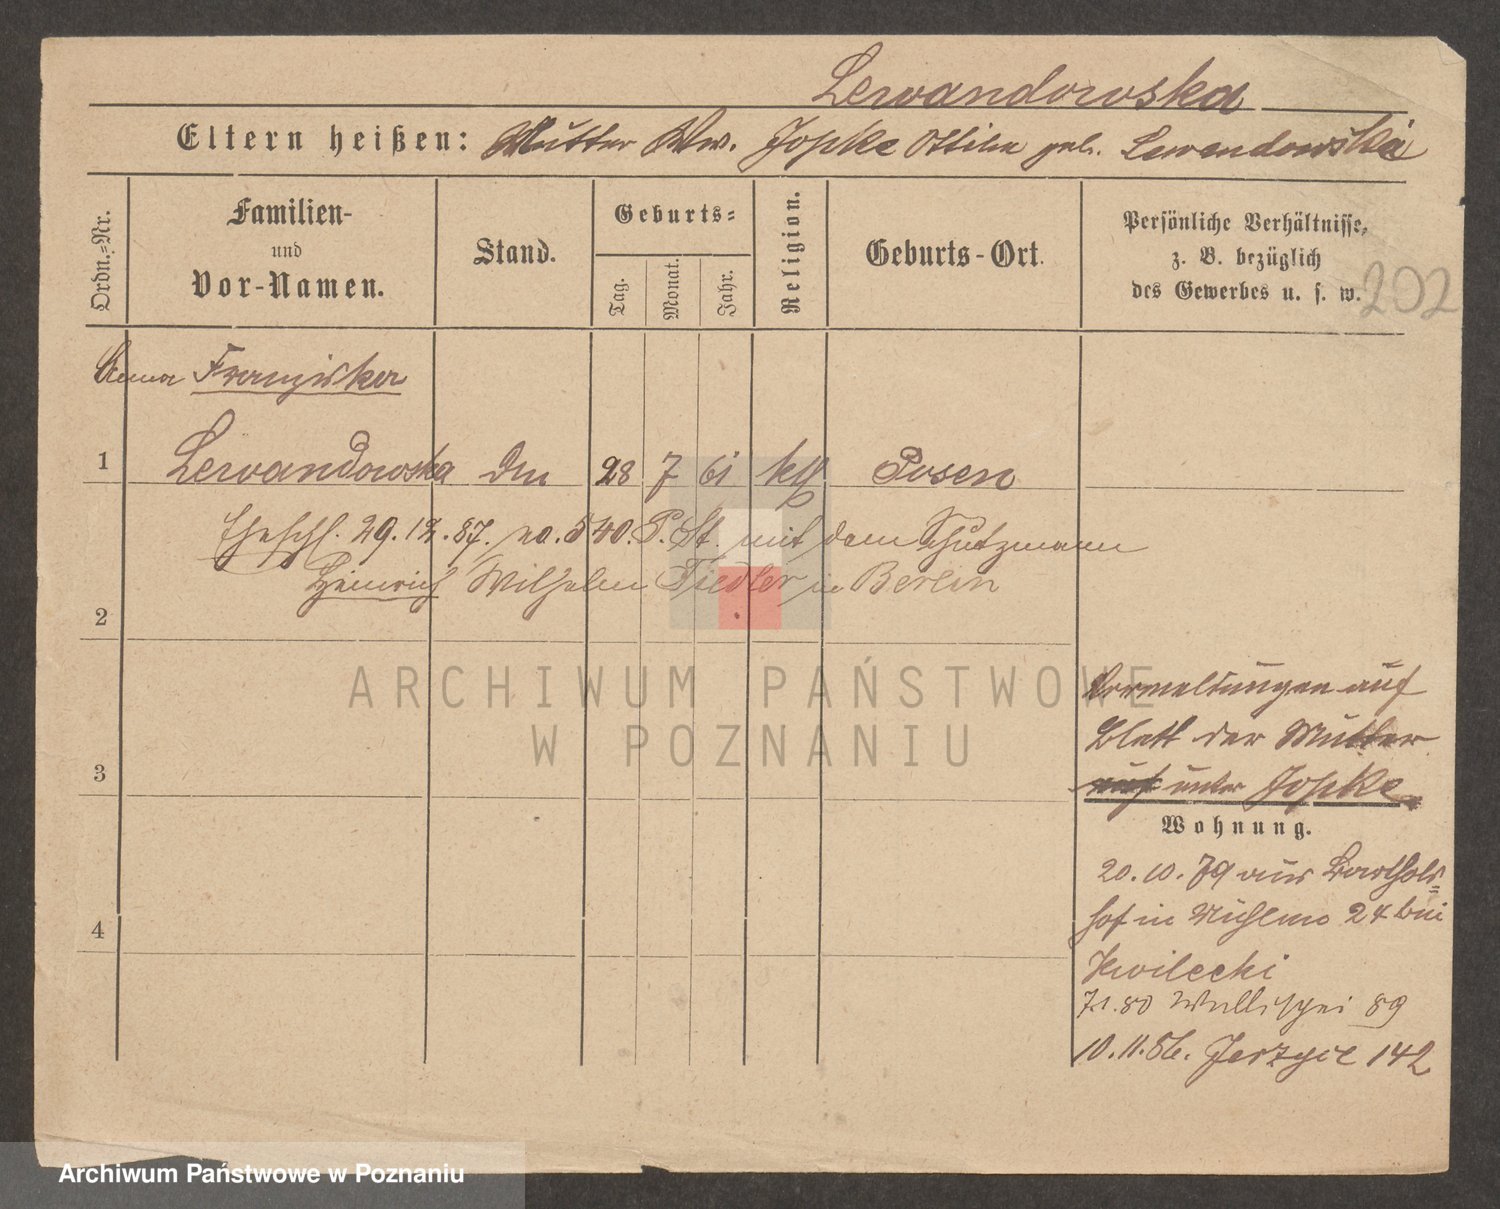 Lewandowska
Eltern heißen: Mutter Ww. Jopke Ottilie geb. Lewandowska
Ordn.-Nr.
Familien-
und
Vor-Namen.
Stand.
Geburts-
Tag.
Monat.
Jahr.
Religion.
Geburts-Ort.
Persönliche Verhältnisse,
z. B. bezüglich
des Gewerbes u. s. w.
202
Anna Franziska
1 Lewandowska 28 7 61 Posen
Eheschl. 29.12.87. no. 540. P. St. mit dem Schutzmann
Heinrich Wilhelm Fiedler in Berlin
2
ARCHIWUM PAŃSTWOWE
W POZNANIU
Vermeldungen auf
Blatt der Mutter
unter Jopke.
3
Wohnung.
20.10.79 aus Barthols-
hof in Mühlen 24 bei
Kwilecki
4
7.1.80 Wallischei 89
10.11.86. Jerzyce 142
Archiwum Państwowe w Poznaniu